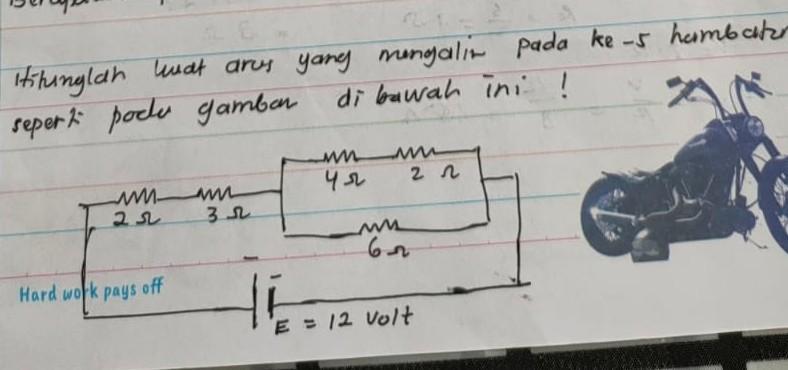 Hitunglah kuat arus yang mengalir pada ke-5 hambatan
seperti pada gambar di bawah ini !
4 Ω 2 Ω
2 Ω 3 Ω
6 Ω
Hard work pays off
E = 12 Volt